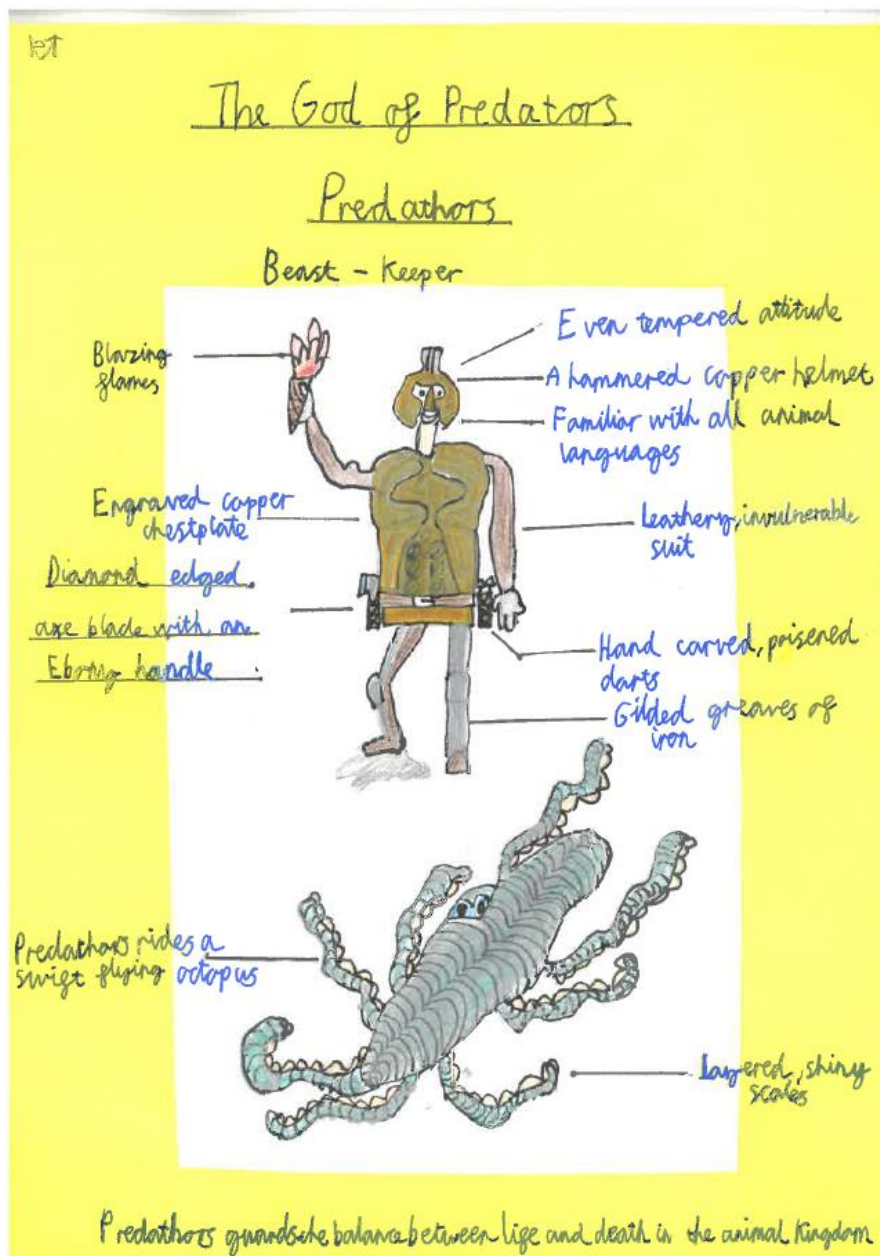 The God of Predators
Predathors
Beast - Keeper
Blazing
flames
Even tempered attitude
A hammered copper helmet
Familiar with all animal
languages
Engraved copper
chestplate
Leathery, invulnerable
suit
Diamond edged
axe blade with an
Ebony handle
Hand carved, poisened
darts
Gilded greaves of
iron
Predathors rides a
swift flying octopus
Layered, shiny
scales
Predathors guards the balance between life and death in the animal Kingdom